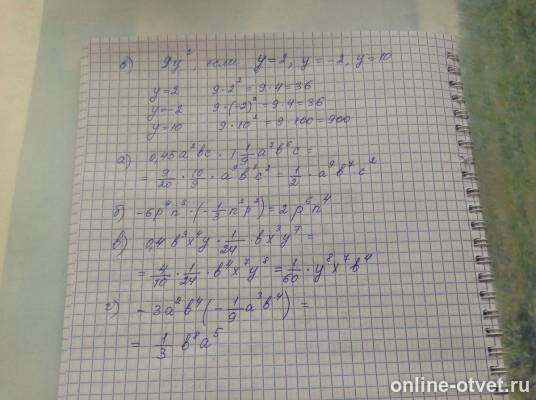 в) 9y², если y=2, y=-2, y=10
y=2 9·2²=9·4=36
y=-2 9·(-2)²=9·4=36
y=10 9·10²=9·100=900
а) 0,45a²bc · 1 1/9 a²b⁶c =
= 9/20 · 10/9 · a²b⁷c² = 1/2 · a⁹b⁷·c²
б) -6p⁴n² · (-1/3 n²p²) = 2p⁶n⁴
в) 0,4 b³x⁴y · 1/24 · bx³y⁷ =
= 4/10 · 1/24 · b⁴x⁷y⁸ = 1/60 · y⁸x⁷b⁴
г) -3a²b⁴(-1/9 a³b⁴) =
= 1/3 b⁸a⁵
online-otvet.ru